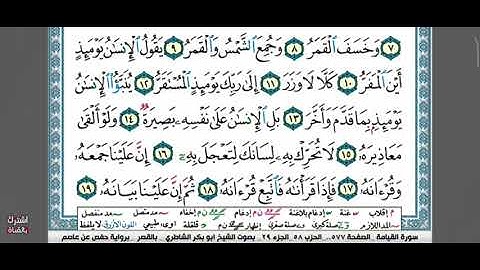 ﴿٧﴾ وَخَسَفَ ٱلْقَمَرُ ﴿٨﴾ وَجُمِعَ ٱلشَّمْسُ وَٱلْقَمَرُ ﴿٩﴾ يَقُولُ ٱلْإِنسَٰنُ يَوْمَئِذٍ
أَيْنَ ٱلْمَفَرُّ ﴿١٠﴾ كَلَّا لَا وَزَرَ ﴿١١﴾ إِلَىٰ رَبِّكَ يَوْمَئِذٍ ٱلْمُسْتَقَرُّ ﴿١٢﴾ يُنَبَّؤُا۟ ٱلْإِنسَٰنُ
يَوْمَئِذٍۭ بِمَا قَدَّمَ وَأَخَّرَ ﴿١٣﴾ بَلِ ٱلْإِنسَٰنُ عَلَىٰ نَفْسِهِۦ بَصِيرَةٌ ﴿١٤﴾ وَلَوْ أَلْقَىٰ
مَعَاذِيرَهُۥ ﴿١٥﴾ لَا تُحَرِّكْ بِهِۦ لِسَانَكَ لِتَعْجَلَ بِهِۦٓ ﴿١٦﴾ إِنَّ عَلَيْنَا جَمْعَهُۥ
وَقُرْءَانَهُۥ ﴿١٧﴾ فَإِذَا قَرَأْنَٰهُ فَٱتَّبِعْ قُرْءَانَهُۥ ﴿١٨﴾ ثُمَّ إِنَّ عَلَيْنَا بَيَانَهُۥ ﴿١٩﴾
م إقلاب غنة إدغام بلاغنة إدغام إخفاء مد متصل مد منفصل
المد اللازم صلة كبرى وصلة صغرى إظهار قلقلة لا يلفظ
سورة القيامة . الصفحة ٥٧٧ .. الحزب ٥٨ . الجزء ٢٩ . بصوت الشيخ أبو بكر الشاطري . بالقصر . برواية حفص عن عاصم
اشترك
بالقناة